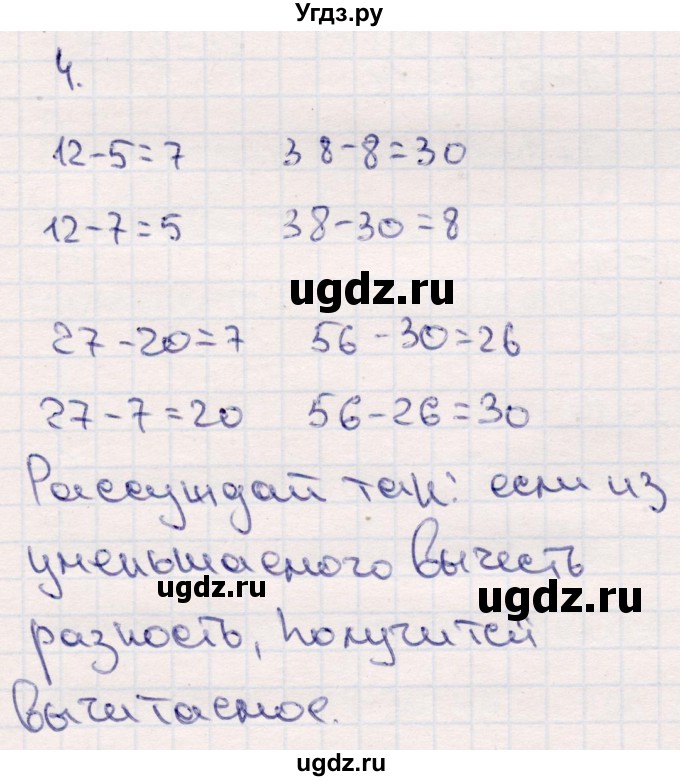 Угдз.ру
4.
12-5=7 38-8=30
12-7=5 38-30=8
ugdz.ru
27-20=7 56-30=26
27-7=20 56-26=30
Рассуждай так: если из
уменьшаемого вычесть
ugdz.ru ugdz.ru
разность, получится
вычитаемое.
ugdz.ru